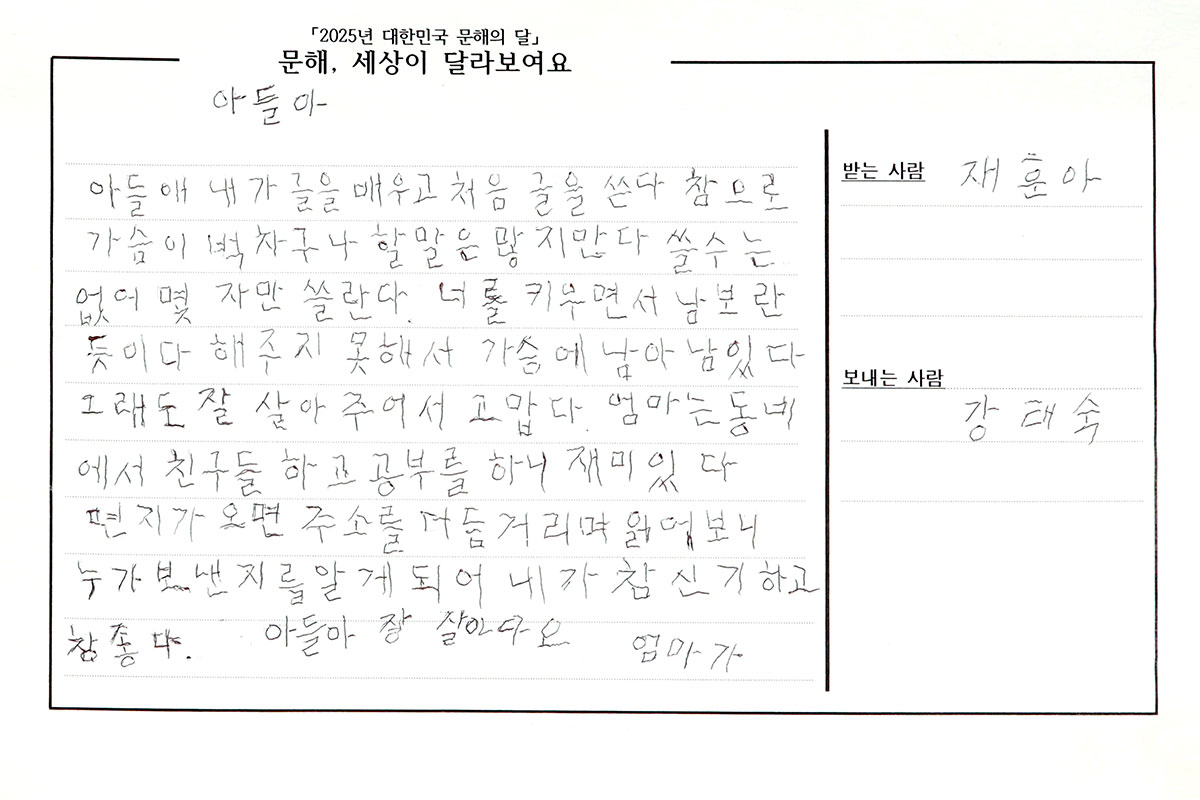 「2025년 대한민국 문해의 달」
문해, 세상이 달라보여요
아들아
아들애 내가 글을 배우고 처음 글을 쓴다 참으로
가슴이 벅차구나 할말은 많지만다 쓸수는
없어 몇 자만 쓸란다. 너를 키우면서 남보란
듯이다 해주지 못해서 가슴에 남아 남있다
그래도 잘 살아 주어서 고맙다. 엄마는 동네
에서 친구들 하고 공부를 하니 재미있다
편지가 오면 주소를 더듬거리며 읽어보니
누가 보낸지를 알게되어 내가 참 신기하고
참좋다.
아들아 잘 살아다오
엄마가
받는 사람 재훈아
보내는 사람
강태숙